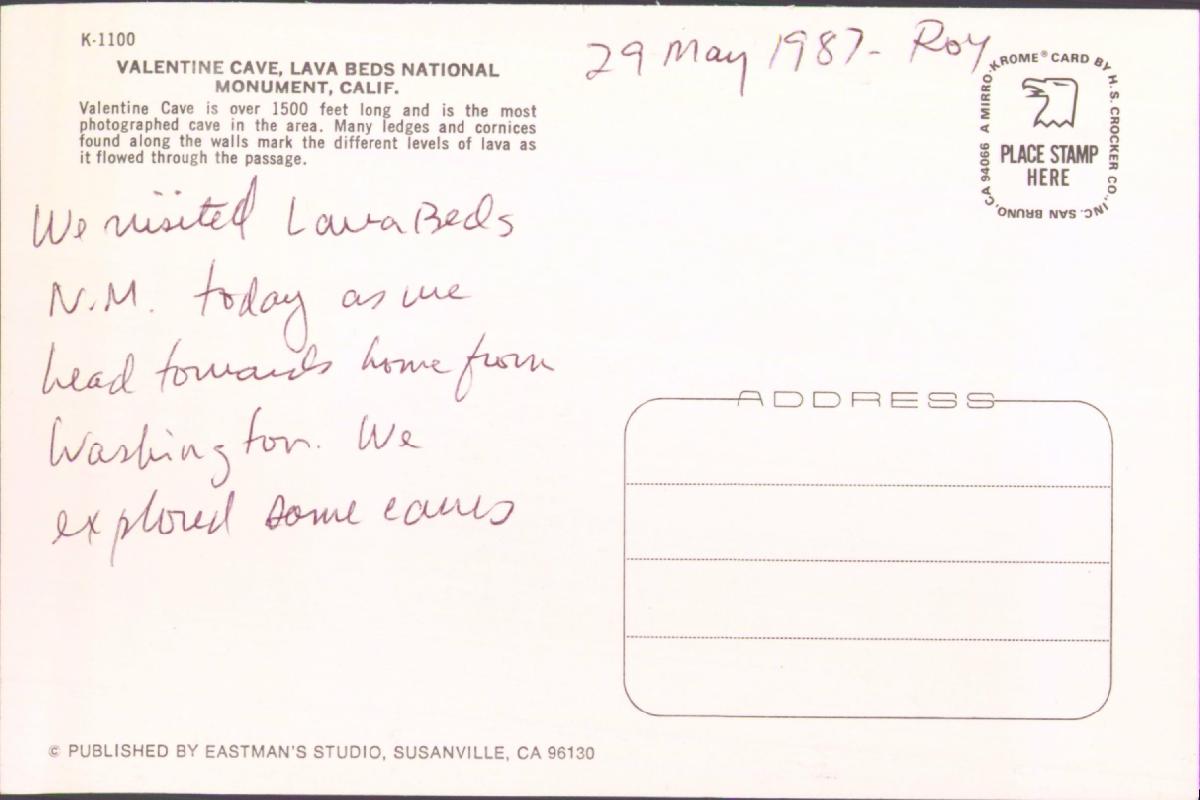 K-1100
VALENTINE CAVE, LAVA BEDS NATIONAL
MONUMENT, CALIF.
Valentine Cave is over 1500 feet long and is the most
photographed cave in the area. Many ledges and cornices
found along the walls mark the different levels of lava as
it flowed through the passage.
29 May 1987- Roy
A MIRRO-KROME® CARD BY H.S. CROCKER CO., INC. SAN BRUNO, CA 94066
PLACE STAMP
HERE
We visited Lava Beds
N.M. today as we
head towards home from
Washington. We
explored some caves
ADDRESS
© PUBLISHED BY EASTMAN'S STUDIO, SUSANVILLE, CA 96130